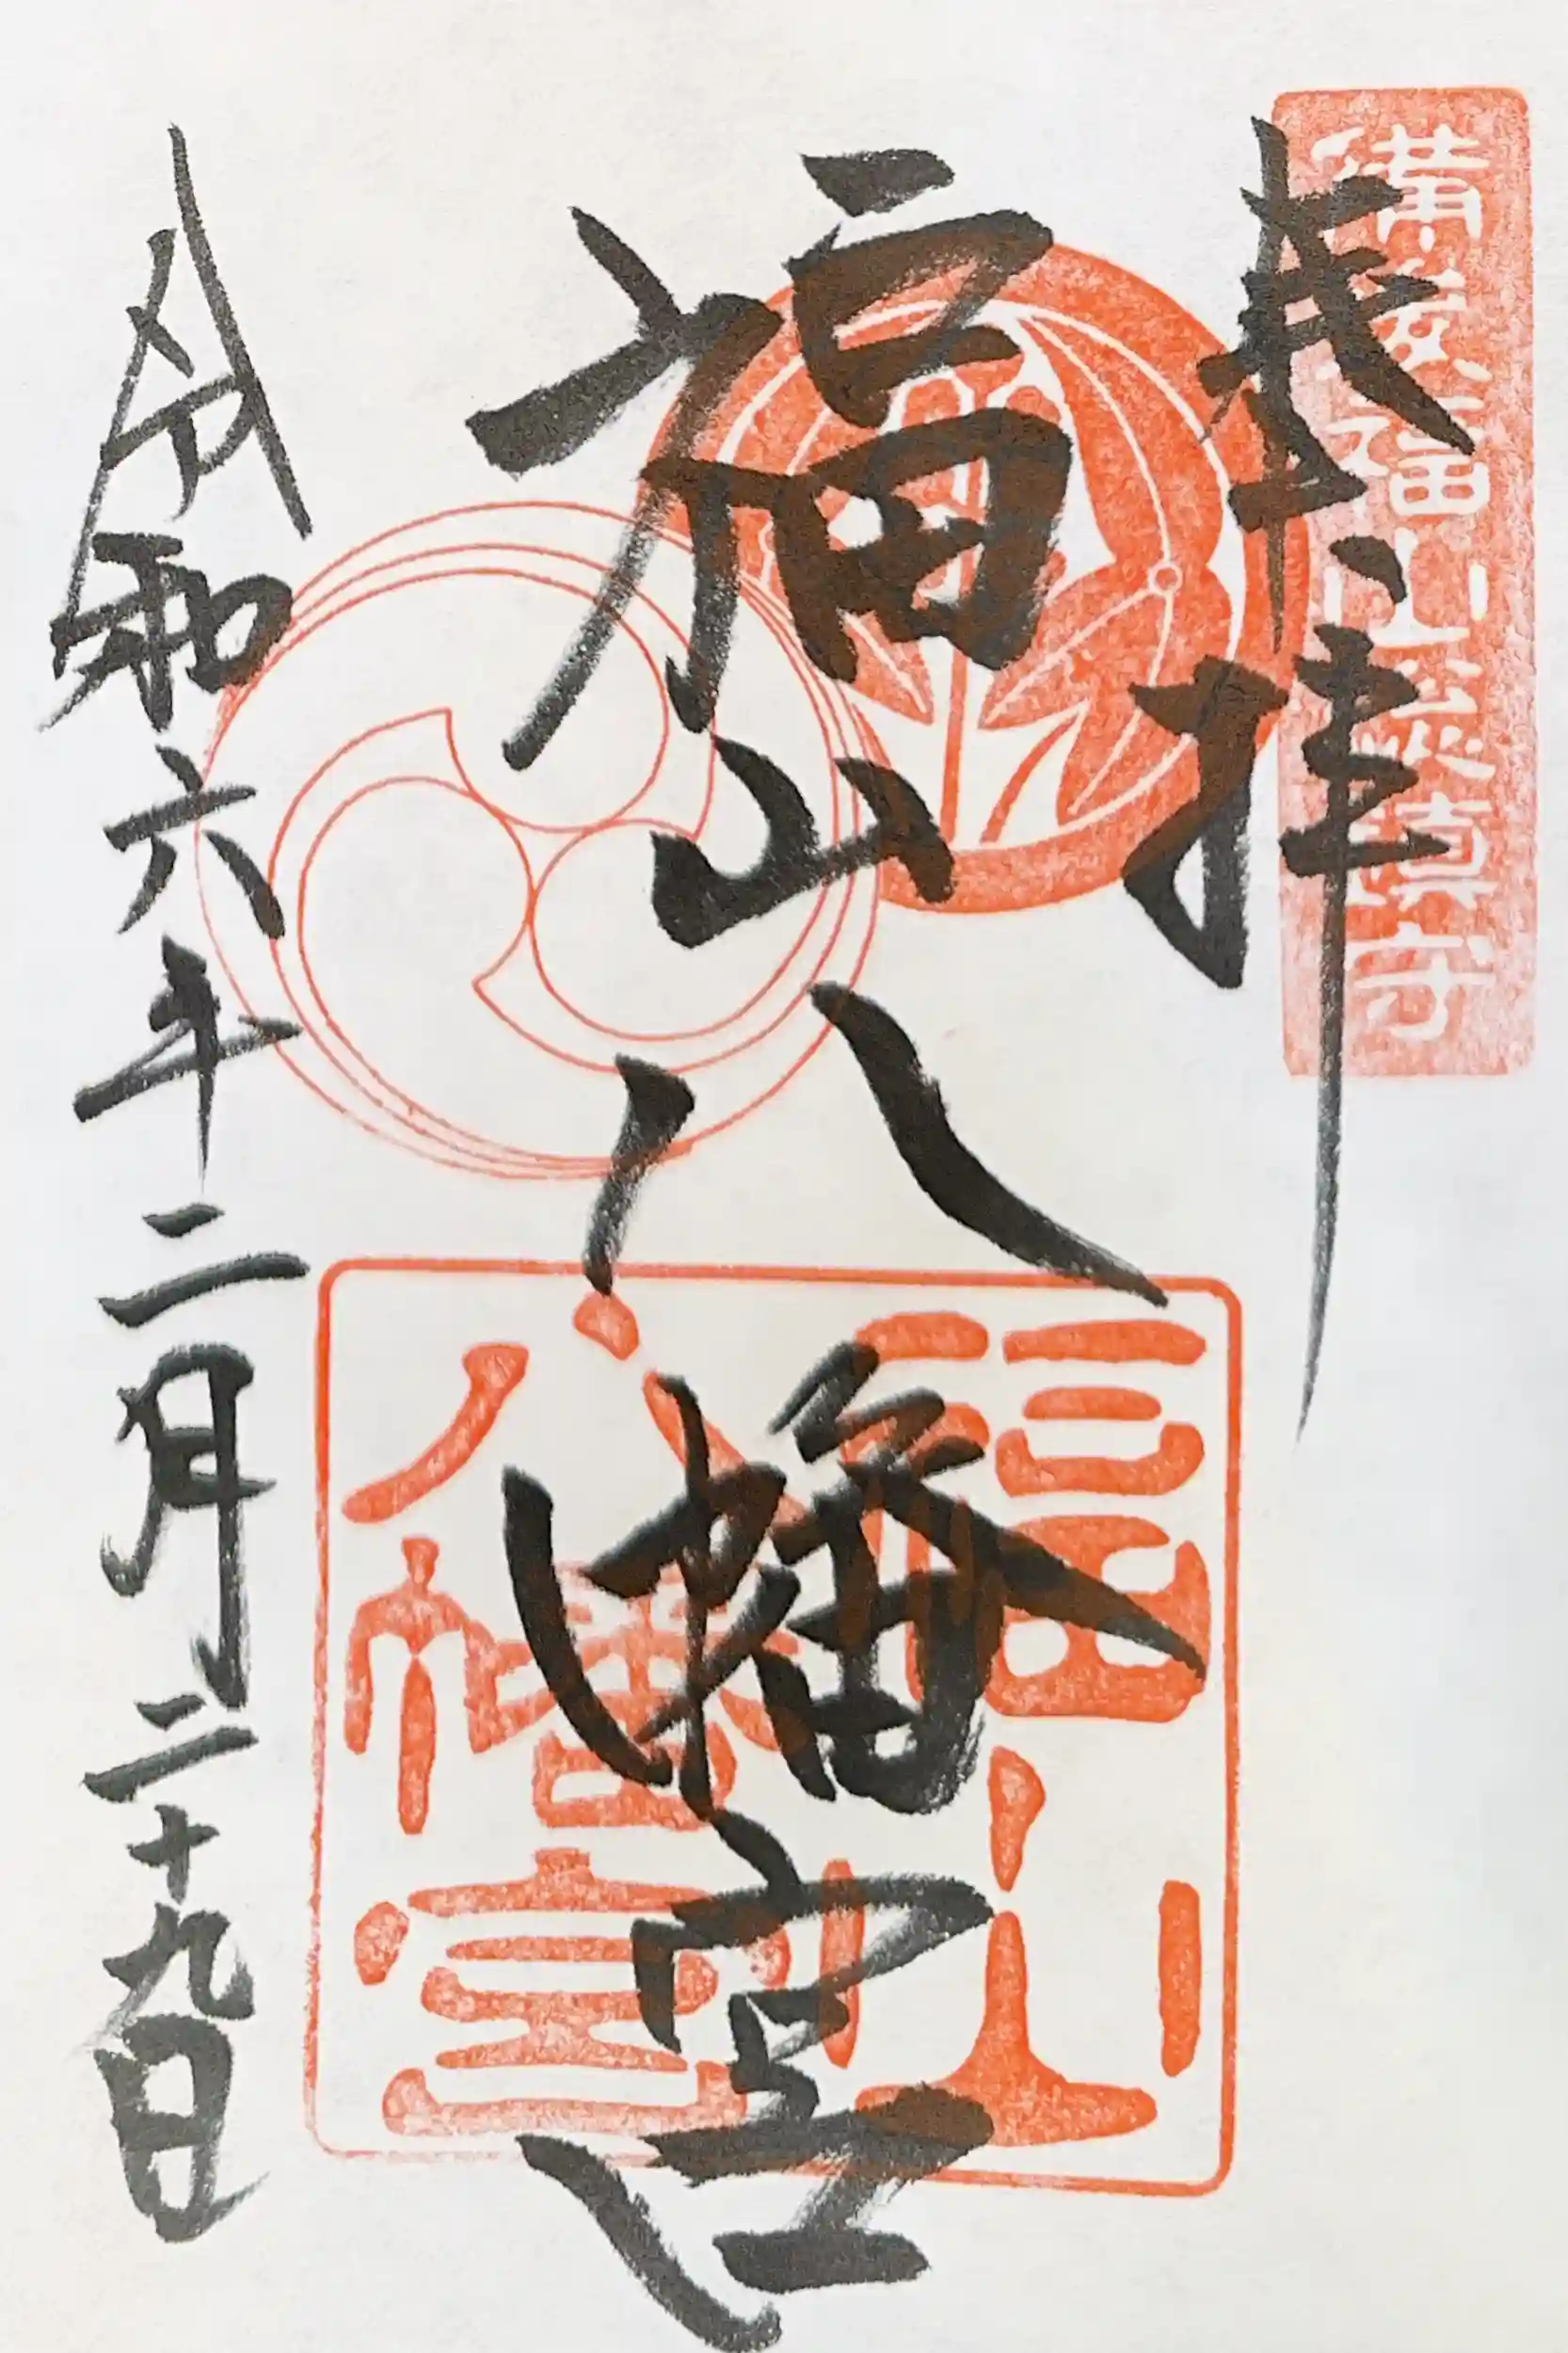 奉拝
備後福山総鎮守
福山八幡宮
福山八幡宮
令和六年二月二十九日